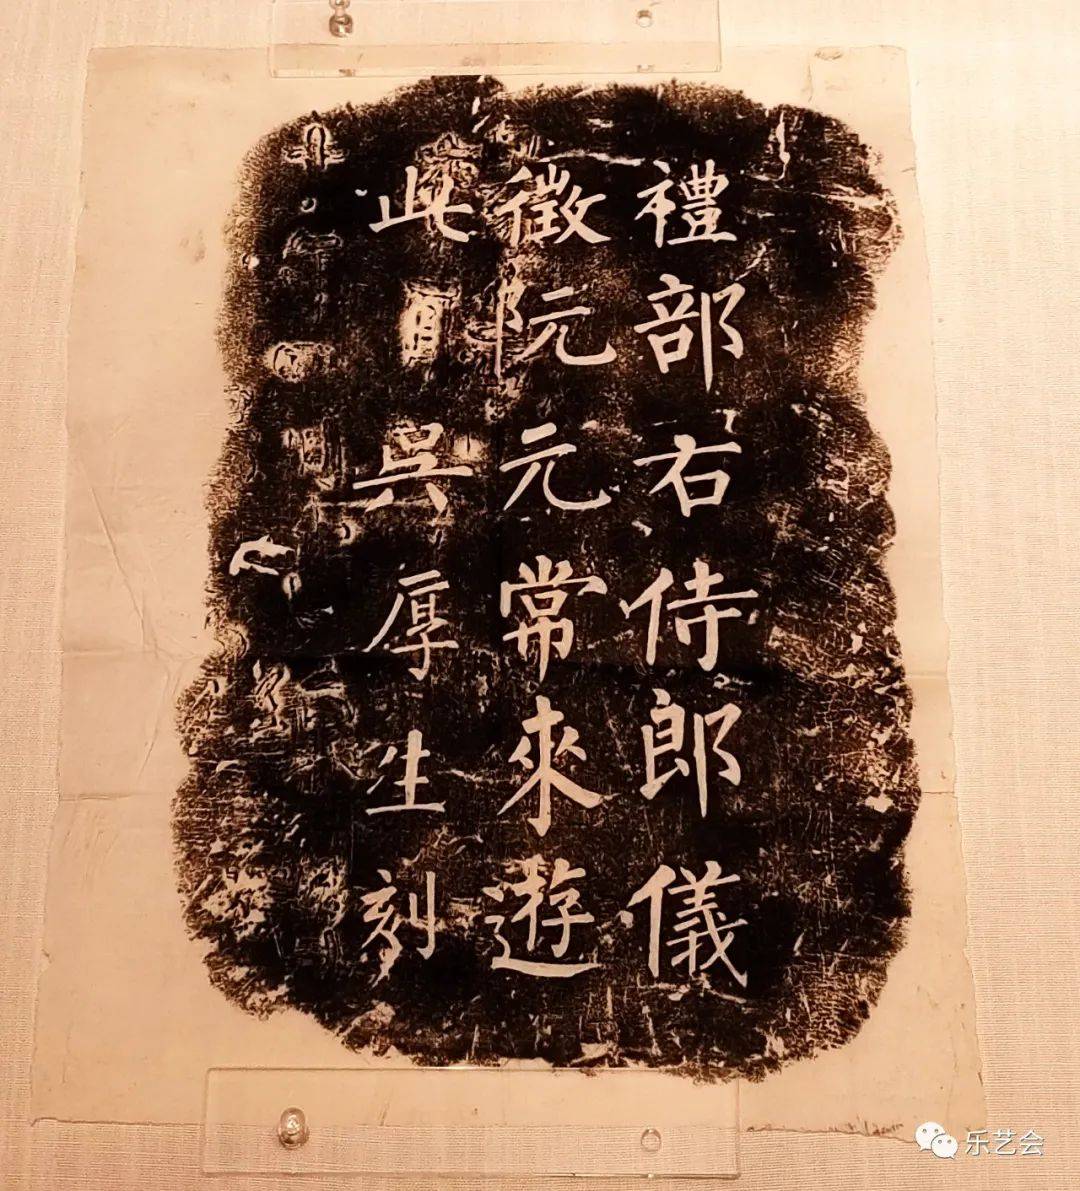 禮部右侍郎儀
徵阮元常來遊
此 吳厚生刻
乐艺会